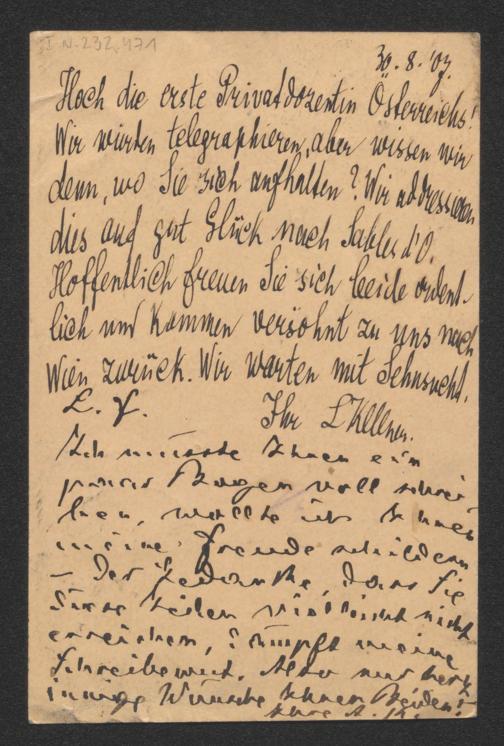 I N-232.471
30.8.'07.
Hoch die erste Privatdozentin Österreichs!
Wir würden telegraphieren, aber wissen wir
denn, wo Sie sich aufhalten? Wir addressieren
dies auf gut Glück nach Sables d'O.
Hoffentlich freuen Sie sich beide ordent-
lich und kommen versöhnt zu uns nach
Wien zurück. Wir warten mit Sehnsucht.
Ihr LKellner.
Ich müsste Ihnen ein
paar Bogen voll schrei-
ben, wollte ich Ihnen
meine Freude schildern
– Der Gedanke, dass Sie
diese Zeilen vielleicht nicht
erreichen, dämpft meine
Schreibewut. Also nur herz-
innige Wünsche Ihnen Beiden!
Ihre A. K.